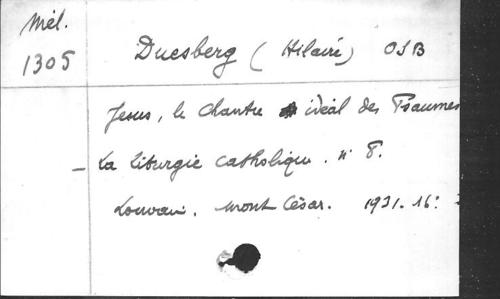 Mél.
1305
Duesberg (Hilaire) OSB
Jesus, le chantre idéal des Psaumes
- La liturgie catholique. n° 8.
Louvain. Mont César. 1931. 16°